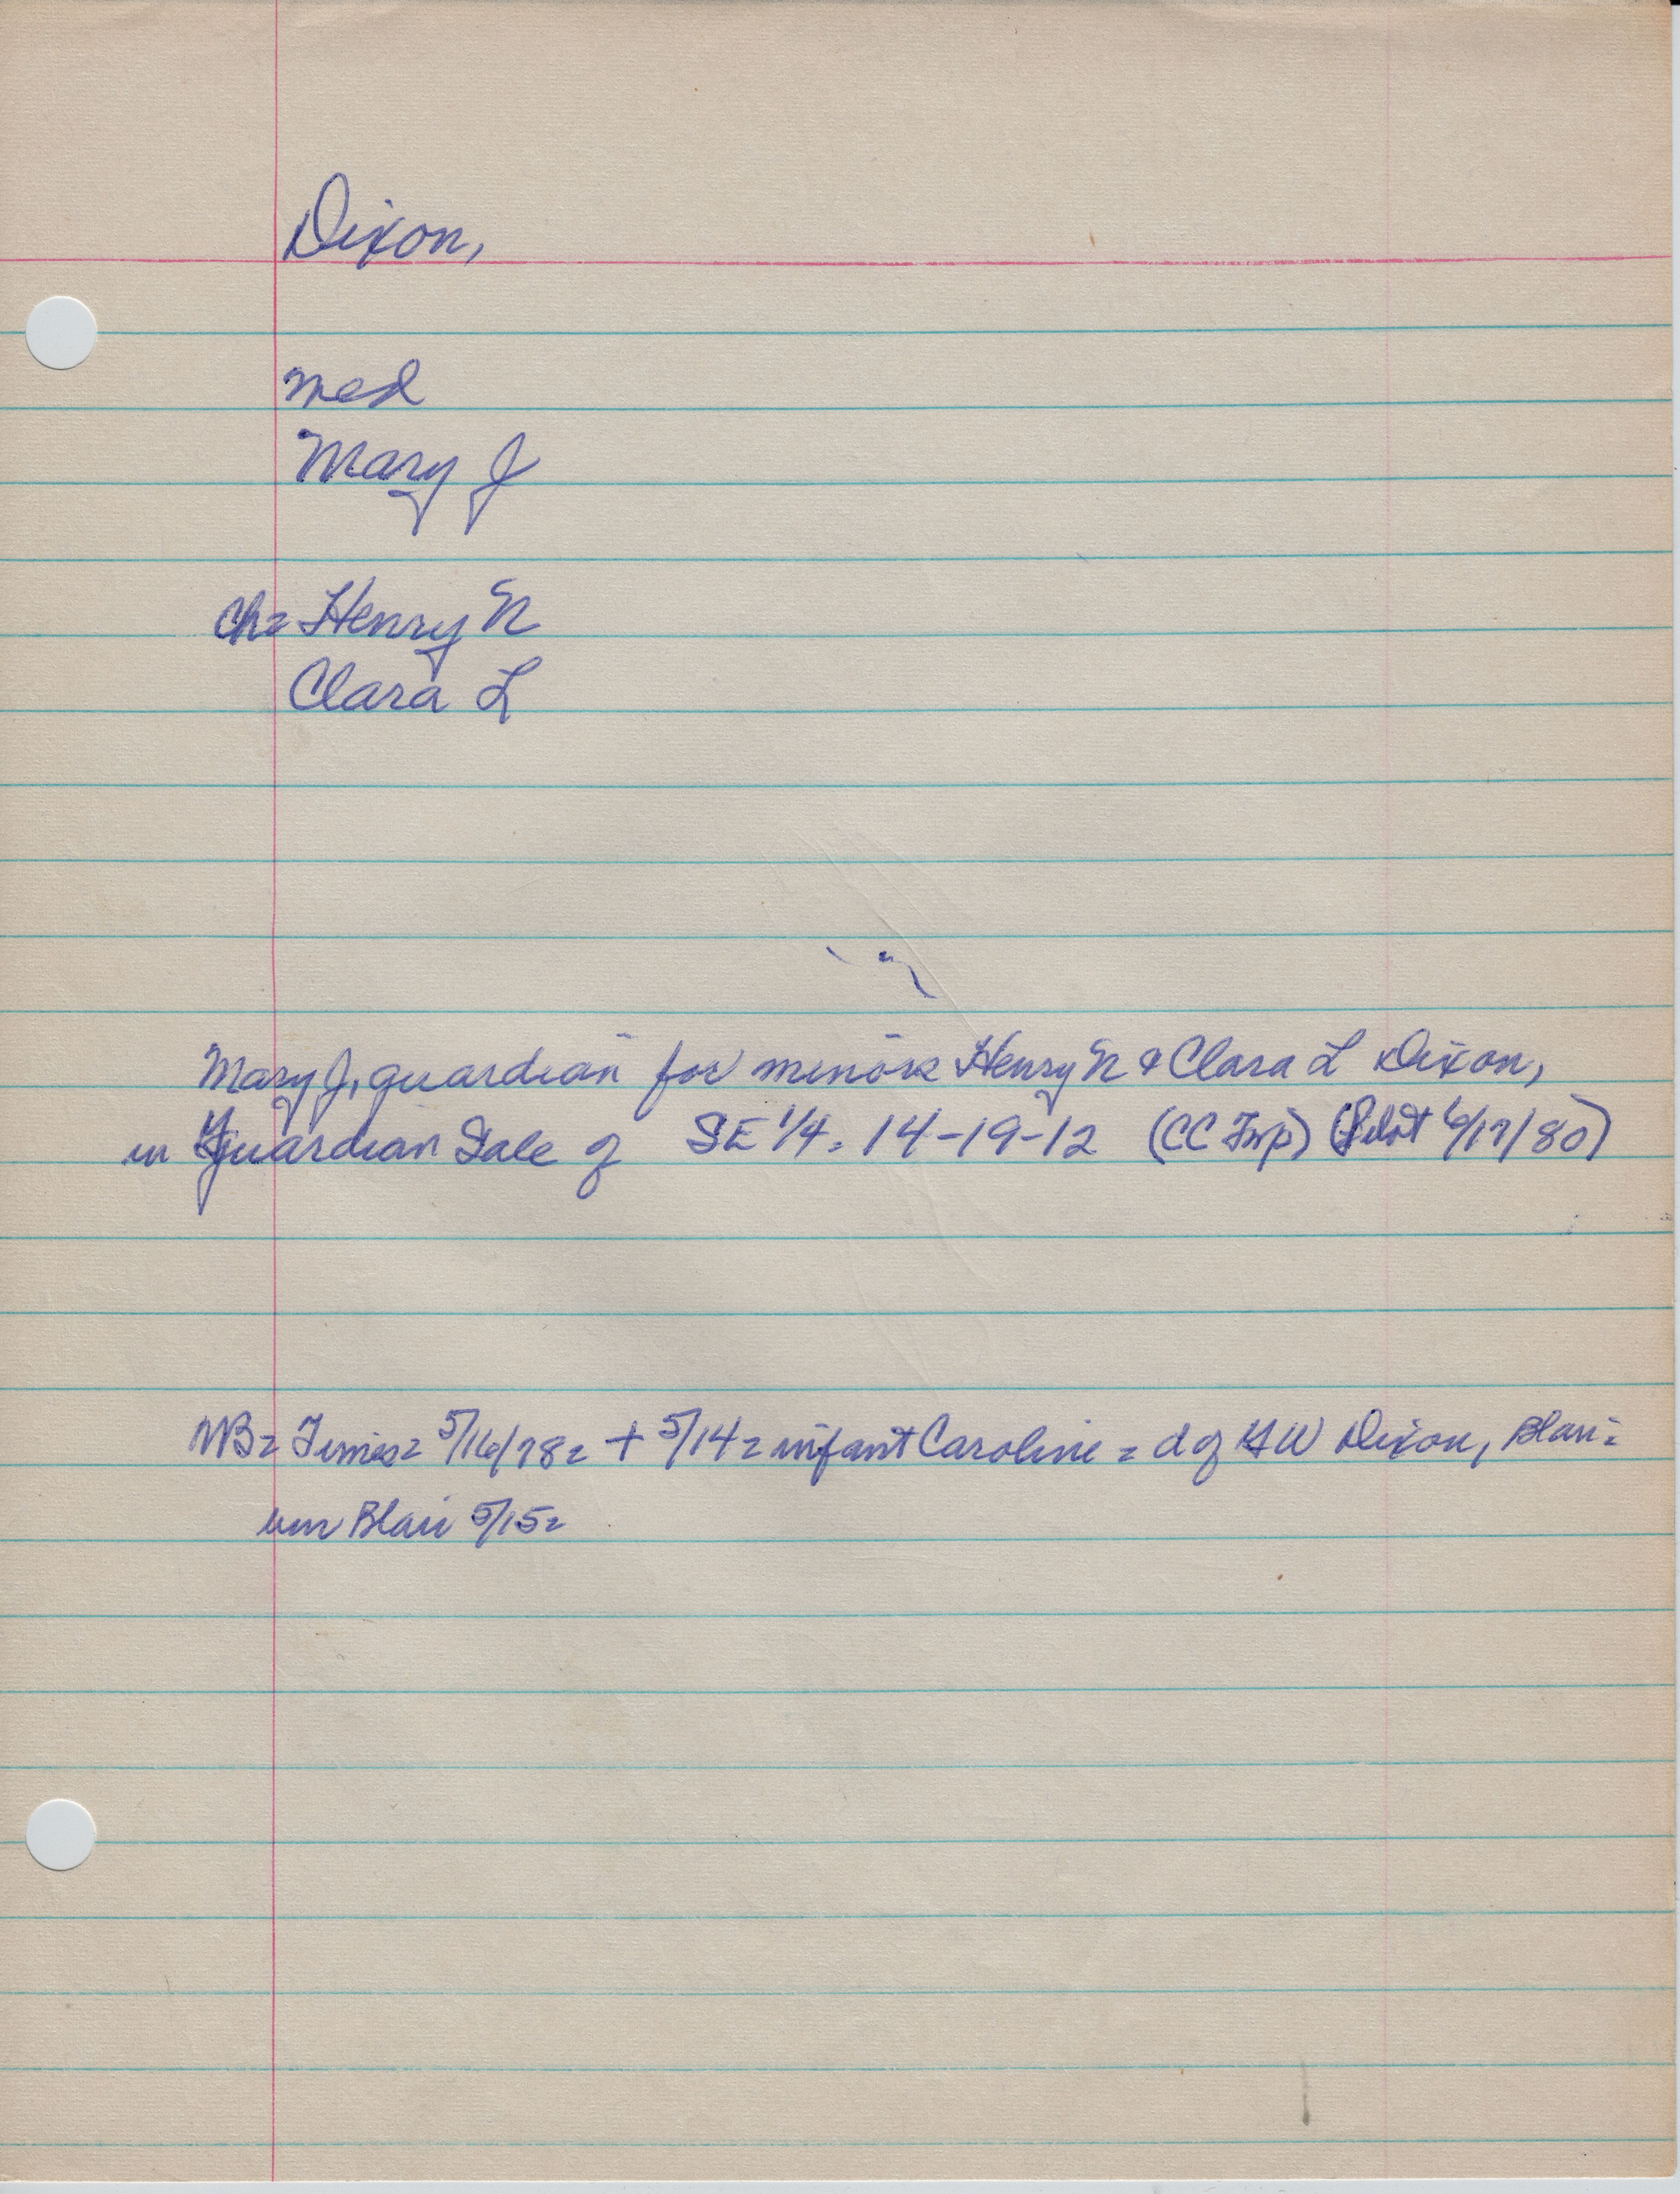 Dixon,
med
Mary J
Ch= Henry N
Clara L
Mary J, guardian for minors Henry N & Clara L Dixon,
in Guardian Sale of SE 1/4 = 14-19-12 (CC Twp) (Pilot 6/17/80)
NB= Times= 5/16/78= + 5/14= infant Caroline = d of GW Dixon, Blair=
Blair 5/15=